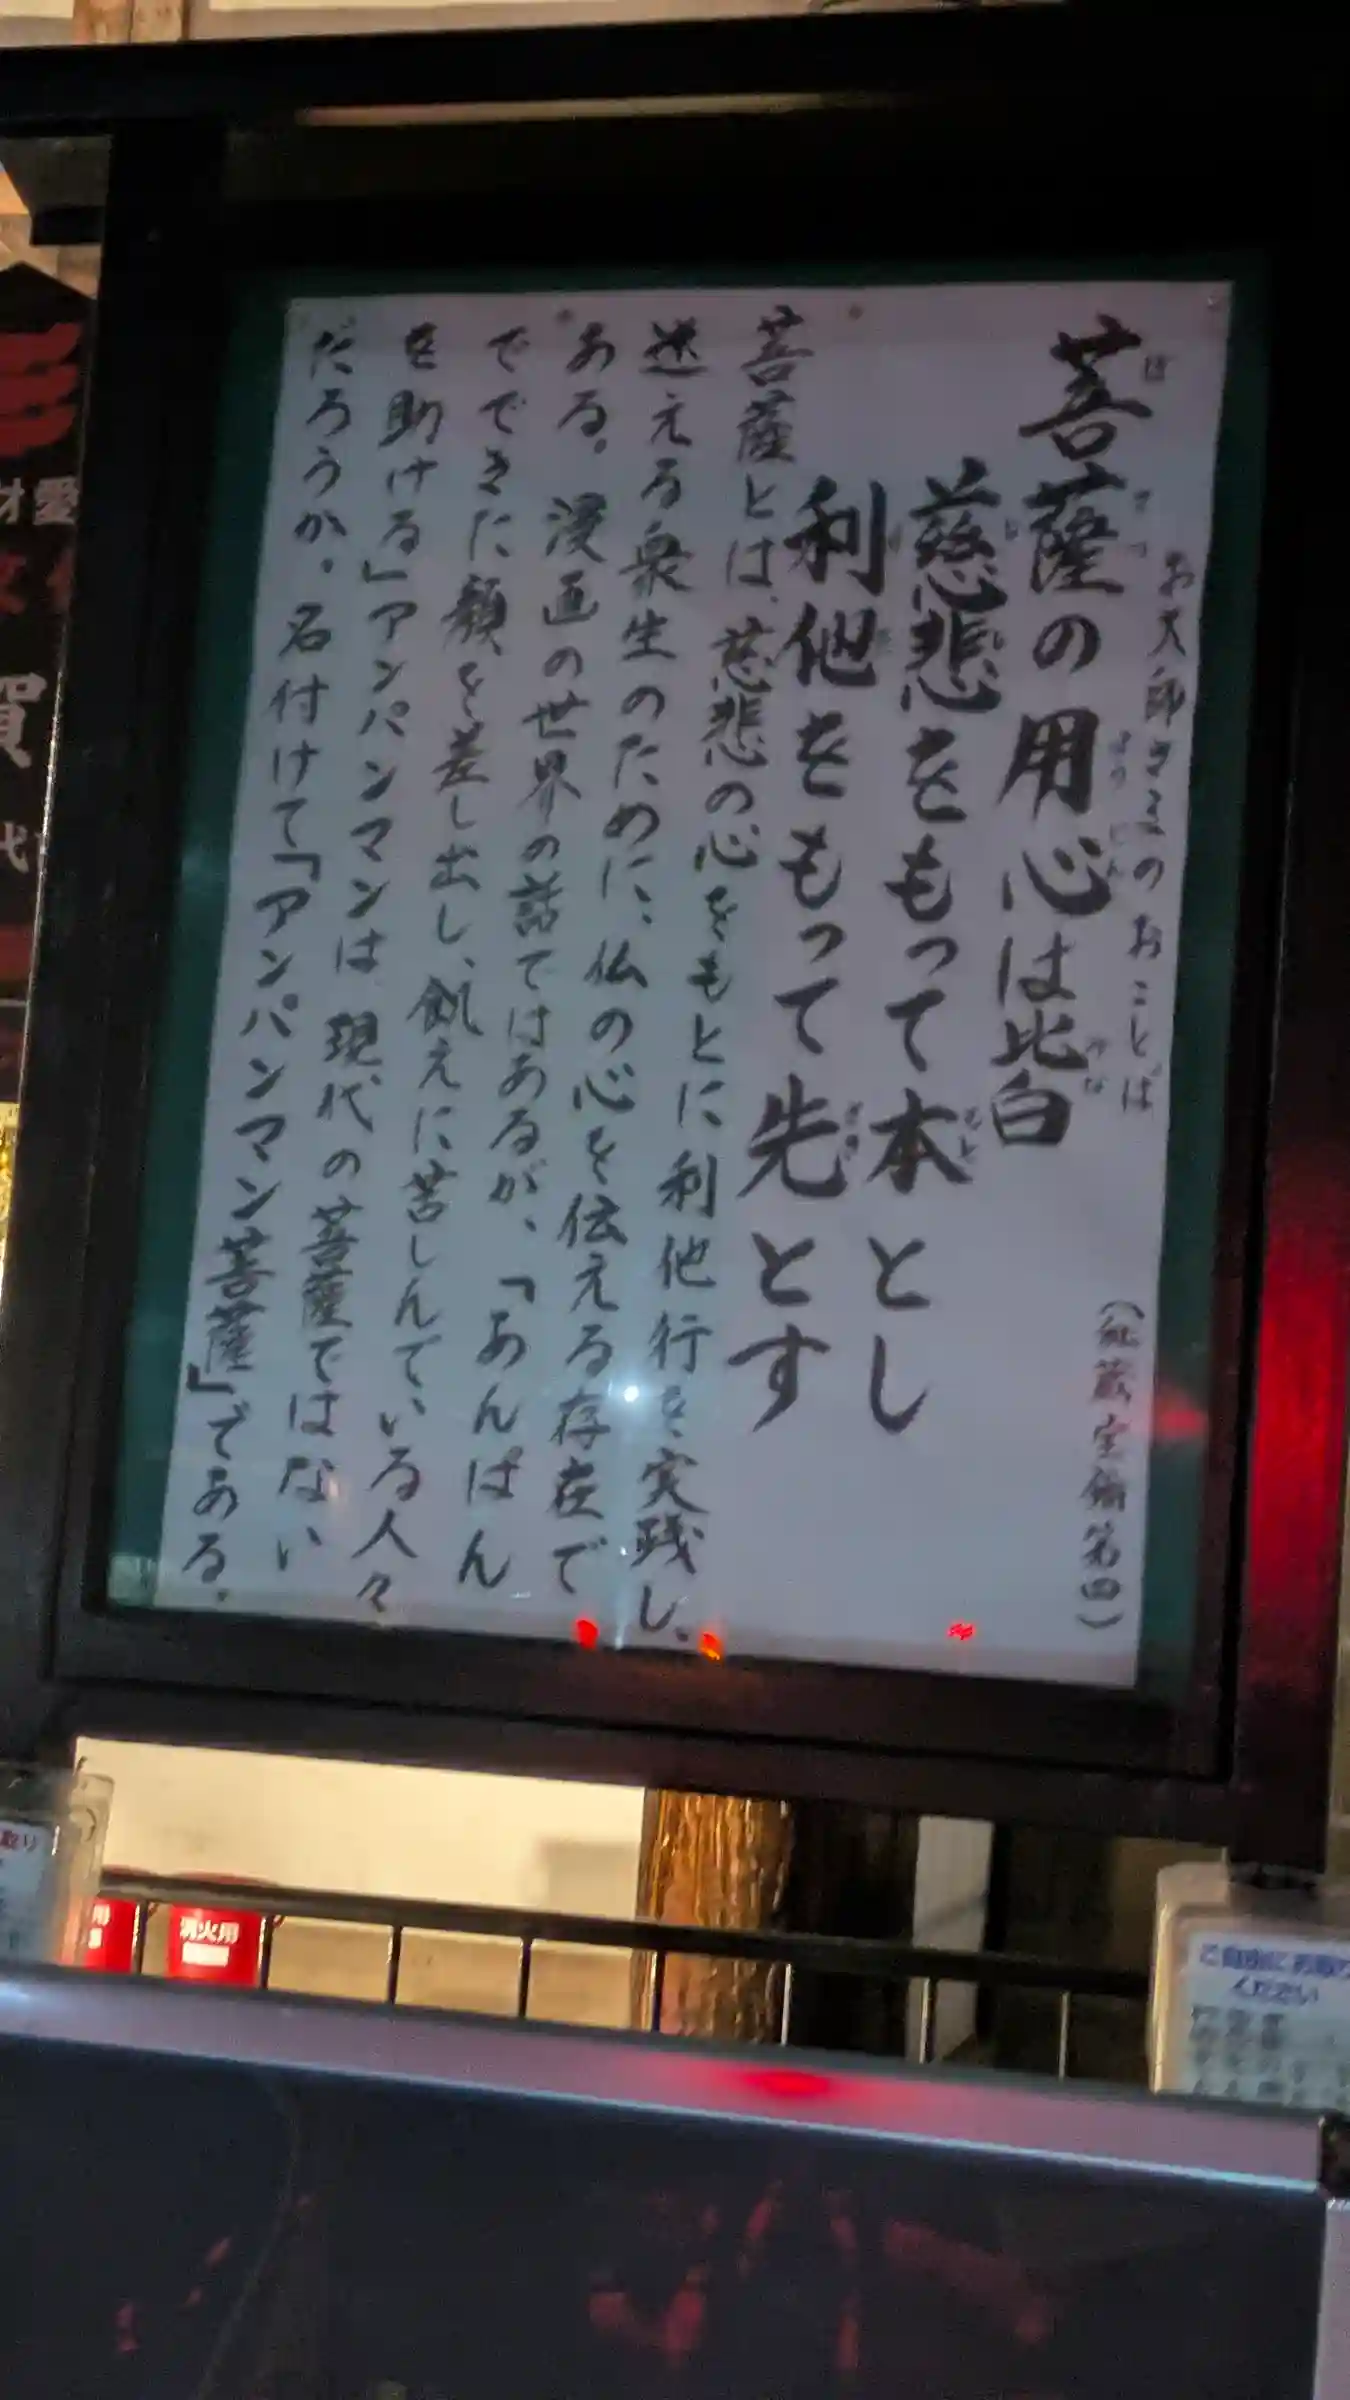 お大師さまのおことば
(秘蔵宝鑰第四)
菩薩の用心は皆
慈悲をもって本とし
利他をもって先とす
菩薩とは、慈悲の心をもとに利他行を実践し、
迷える衆生のために、仏の心を伝える存在で
ある。漫画の世界の話ではあるが、「あんぱん
でできた顔を差し出し、飢えに苦しんでいる人々
を助ける」アンパンマンは現代の菩薩ではない
だろうか。名付けて「アンパンマン菩薩」である。
賀
消火用
ご自由にお取り
ください